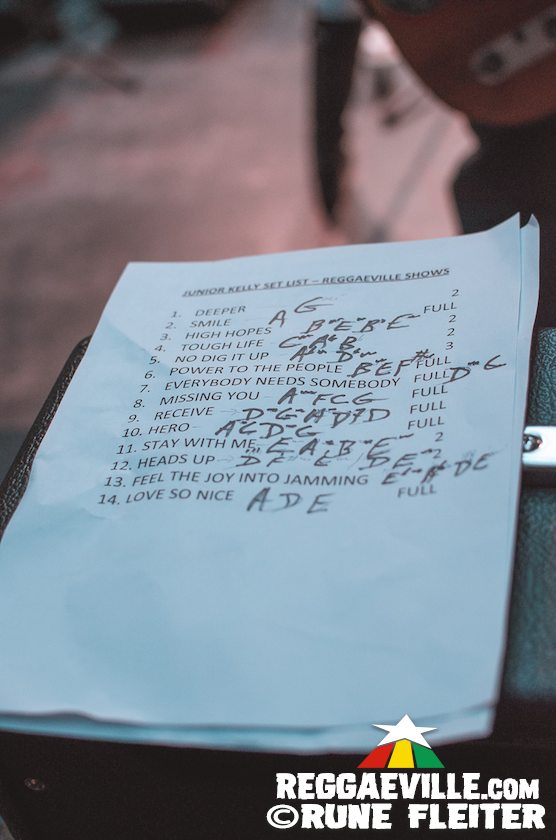 JUNIOR KELLY SET LIST – REGGAEVILLE SHOWS
1. DEEPER G 2
2. SMILE A FULL
3. HIGH HOPES B E B E 2
4. TOUGH LIFE C A B 2
5. NO DIG IT UP A D 3
6. POWER TO THE PEOPLE B E F# FULL
7. EVERYBODY NEEDS SOMEBODY FULL D G
8. MISSING YOU A F C G FULL
9. RECEIVE D G A D FULL
10. HERO A C D G FULL
11. STAY WITH ME E A B E 2
12. HEADS UP D F E D E 2
13. FEEL THE JOY INTO JAMMING
14. LOVE SO NICE A D E FULL
REGGAEVILLE.COM
©RUNE FLEITER